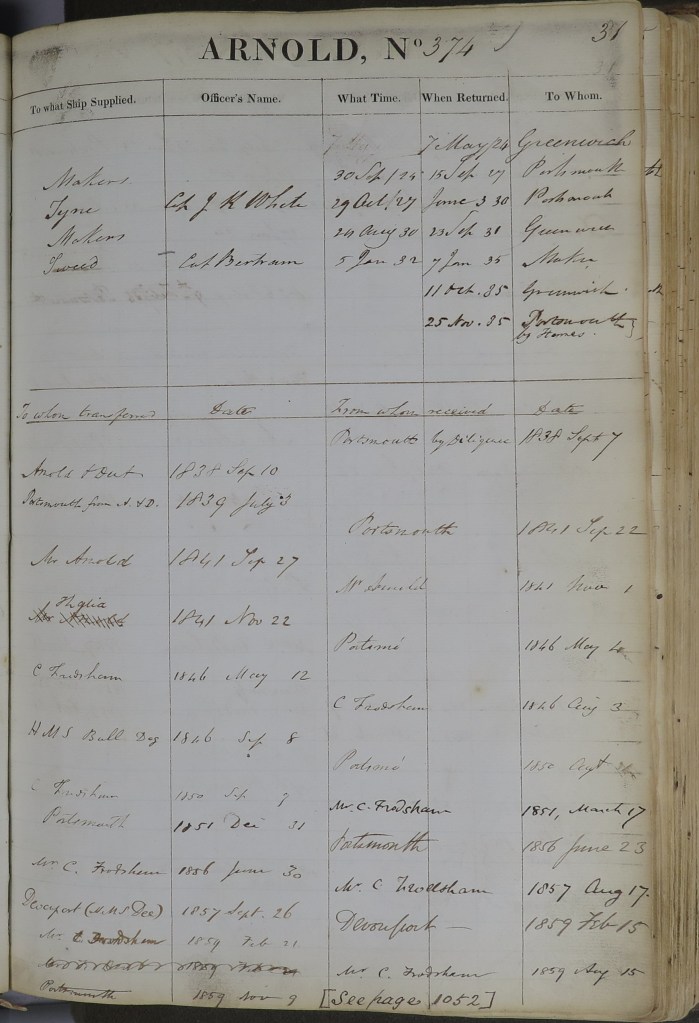 31
ARNOLD, Nº 374
To what Ship Supplied. Officer's Name. What Time. When Returned. To Whom.
7 May/24 Greenwich
Makers 30 Sep/24 15 Sep 27 Portsmouth
Tyne J K White 29 Oct/27 June 3 30 Portsmouth
Makers 24 Aug 30 23 Sep 31 Greenwich
Tweed Bertram 5 Jan 32 7 Jan 35 Maker
11 Oct. 35 Greenwich
25 Nov. 35 Portsmouth
by
To whom transferred Date From whom received Date
Portsmouth by Diligence 1838 Sept 7
Arnold & Dent 1838 Sep 10
Portsmouth from A. & D. 1839 July 3
Portsmouth 1841 Sep 22
Mr Arnold 1841 Sep 27
Mr Arnold 1841 Nov 1
Thalia
1841 Nov 22
Portsmo 1846 May
C Frodsham 1846 May 12
C Frodsham 1846 Aug 3
H M S Bull Dog 1846 Sep 8
Portsmo 1850 Augt
C Frodsham 1850 Sep 9
Mr. C. Frodsham 1851, March 17
Portsmouth 1851 Dec 31
Portsmouth 1856 June 23
Mr C. Frodsham 1856 June 30
Mr. C Frodsham 1857 Aug 17.
Devonport (H.M.S Dee) 1857 Sept. 26
Devonport — 1859 Feb 15
Mr. C Frodsham 1859 Feb 21
1859
Mr. C. Frodsham 1859 Aug 15
Portsmouth 1859 Nov 9 [See page 1052]